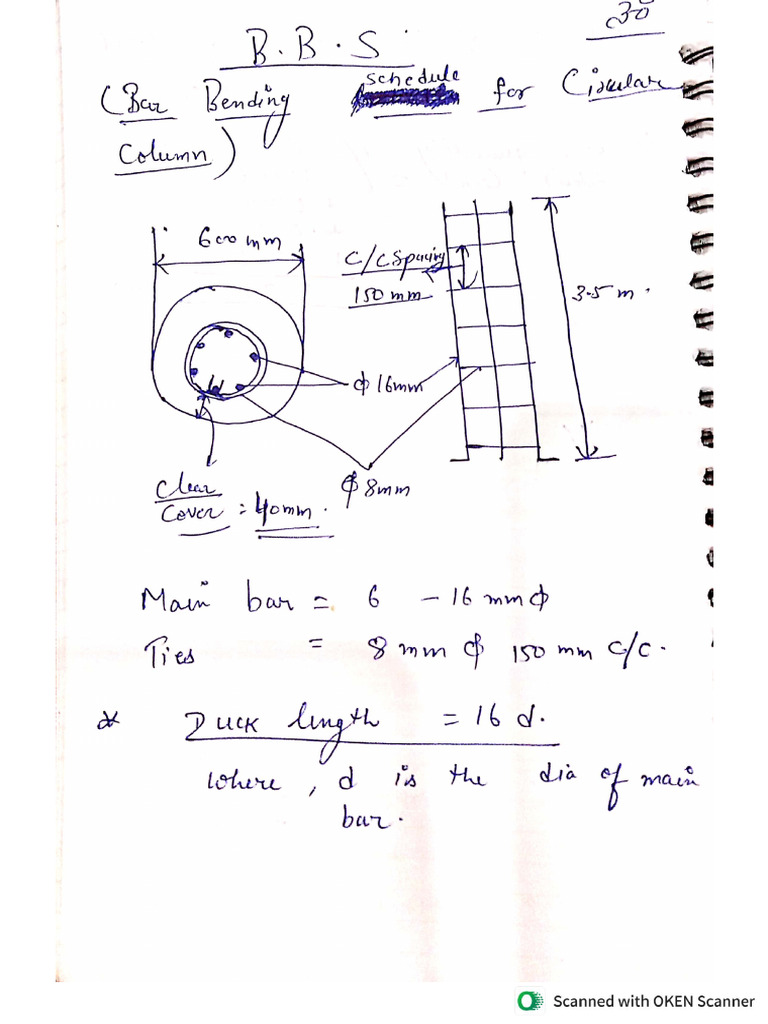 30
B.B.S.
(Bar Bending schedule for Circular
Column)
600mm
C/C Spacing
150 mm
3.5 m.
ϕ 16mm
ϕ 8mm
Clear
Cover = 40mm.
Main bar = 6 - 16 mm ϕ
Ties = 8 mm ϕ 150 mm C/C.
* Duck length = 16 d.
where, d is the dia of main
bar.
Scanned with OKEN Scanner